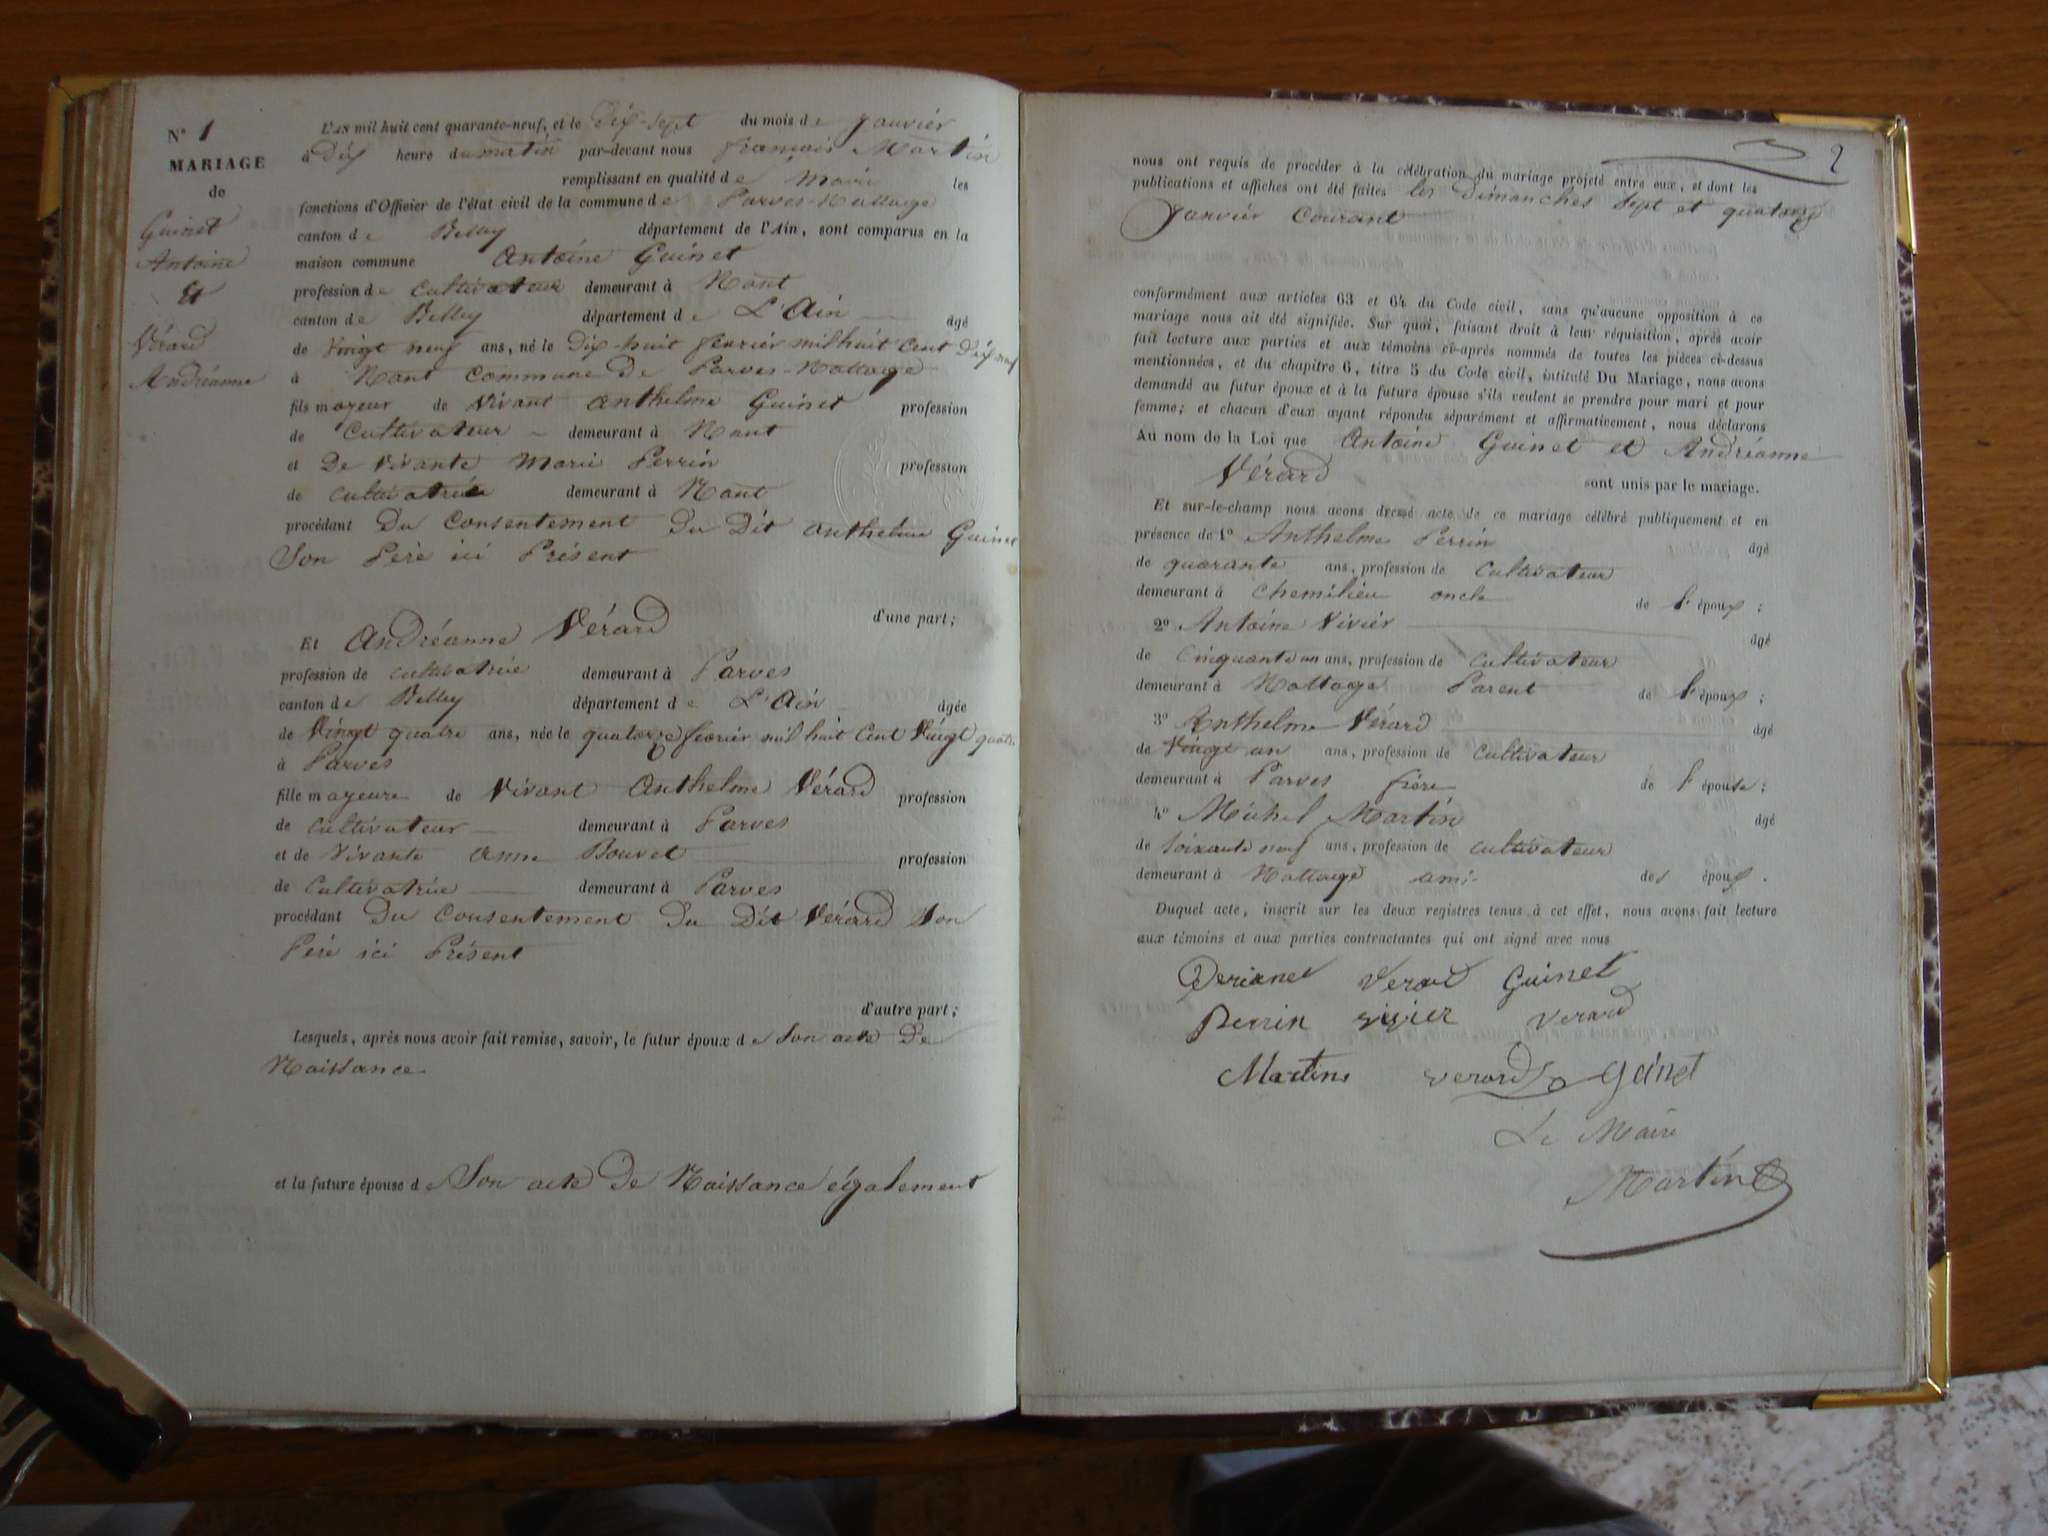 N° 1
MARIAGE
de
Guinet
Antoine
Et
Vérard
Andréanne
L'AN mil huit cent quarante-neuf, et le Dix-sept du mois de janvier
à Dix heure du matin par-devant nous françois Martin
remplissant en qualité de Maire les
fonctions d'Officier de l'état civil de la commune de Parves-Nattage
canton de Belley département de l'Ain, sont comparus en la
maison commune Antoine Guinet
profession de cultivateur demeurant à Nant
canton de Belley département de L'Ain âgé
de Vingt neuf ans, né le Dix-huit fevrier mil huit Cent Dix neuf
à Nant commune De Parves-Nattage
fils mayeur de Vivant Anthelme Guinet profession
de Cultivateur demeurant à Nant
et De Vivante Marie Perrin profession
de cultivatrice demeurant à Nant
procédant Du Consentement Du Dit Anthelme Guinet
Son Père ici Présent
d'une part;
Et Andréanne Vérard
profession de cultivatrice demeurant à Parves
canton de Belley département de L'Ain âgée
de Vingt quatre ans, née le quatorze fevrier mil huit Cent Vingt quatre
à Parves
fille mayeure de Vivant Anthelme Vérard profession
de Cultivateur demeurant à Parves
et de Vivante Anne Bouvet profession
de Cultivatrice demeurant à Parves
procédant Du Consentement Du Dit Vérard Son
Père ici Présent
d'autre part;
Lesquels, après nous avoir fait remise, savoir, le futur époux de Son acte De
Naissance
et la future épouse de Son acte De Naissance également
2
nous ont requis de procéder à la célébration du mariage projeté entre eux, et dont les
publications et affiches ont été faites les Dimanches Sept et quatorze
Janvier Courant
conformément aux articles 63 et 64 du Code civil, sans qu'aucune opposition à ce
mariage nous ait été signifiée. Sur quoi, faisant droit à leur réquisition, après avoir
fait lecture aux parties et aux témoins ci-après nommés de toutes les pièces ci-dessus
mentionnées, et du chapitre 6, titre 5 du Code civil, intitulé Du Mariage, nous avons
demandé au futur époux et à la future épouse s'ils veulent se prendre pour mari et pour
femme; et chacun d'eux ayant répondu séparément et affirmativement, nous déclarons
Au nom de la Loi que Antoine Guinet et Andréanne
Vérard sont unis par le mariage.
Et sur-le-champ nous avons dressé acte de ce mariage célébré publiquement et en
présence de 1° Anthelme Perrin âgé
de quarante ans, profession de cultivateur
demeurant à Chemilieu oncle de l' époux;
2° Antoine Vivier âgé
de Cinquante un ans, profession de cultivateur
demeurant à Nattage Parent de l' époux;
3° Anthelme Vérard âgé
de Vingt un ans, profession de cultivateur
demeurant à Parves frère de l' épouse;
4° Michel Martin âgé
de Soixante neuf ans, profession de cultivateur
demeurant à Nattage ami des époux.
Duquel acte, inscrit sur les deux registres tenus à cet effet, nous avons fait lecture
aux témoins et aux parties contractantes qui ont signé avec nous
Verard Guinet
Perrin vivier verard
Martin verard guinet
Le Maire
Martin